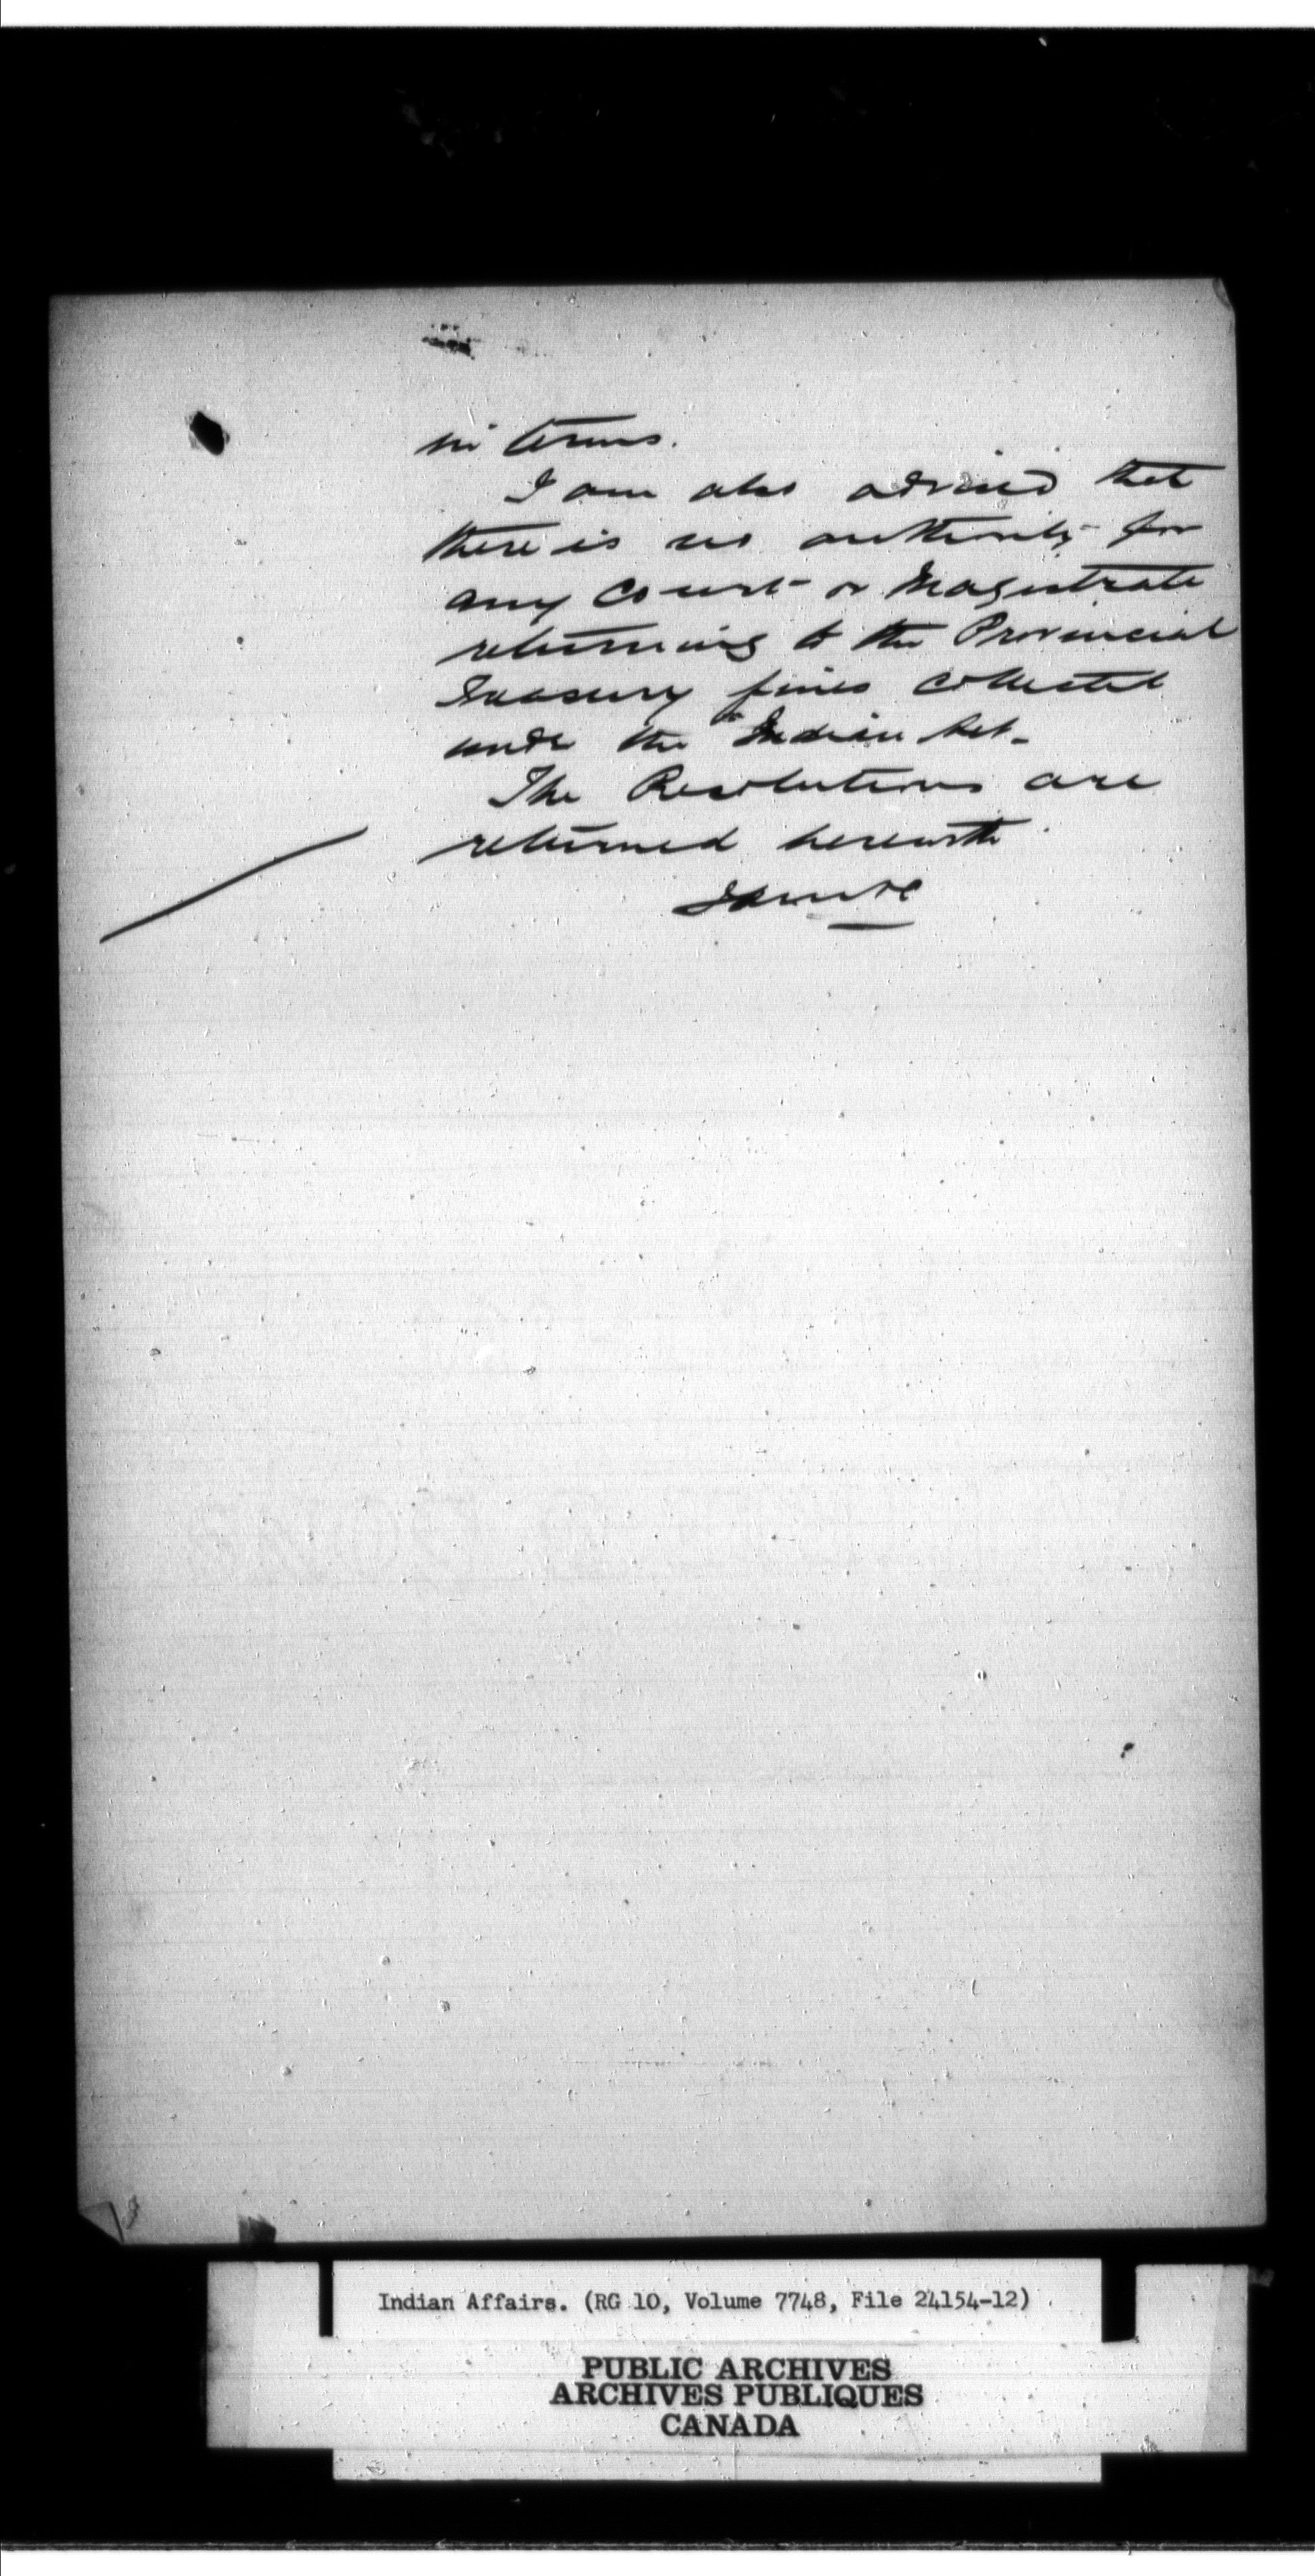 in terms.
I am also advised that
there is no authority for
any Court or Magistrate
returning to the Provincial
Treasury fines collected
under the Indian Act.
The Resolutions are
returned herewith
Indian Affairs. (RG 10, Volume 7748, File 24154-12)
PUBLIC ARCHIVES
ARCHIVES PUBLIQUES
CANADA